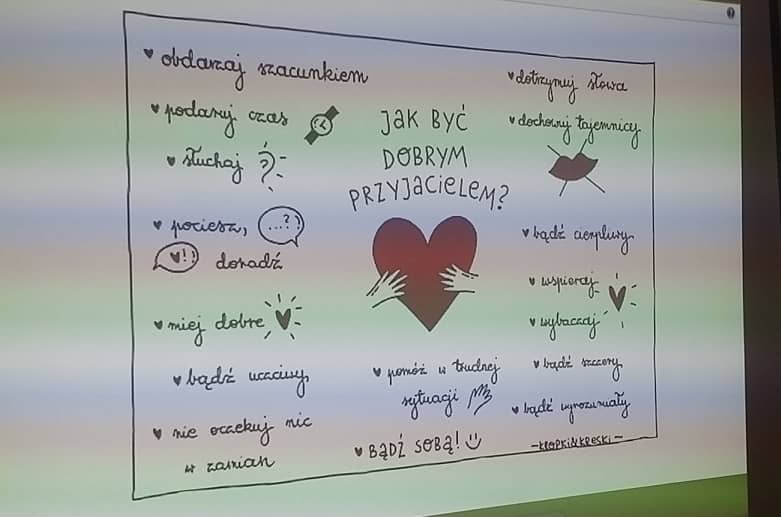 JAK BYĆ
DOBRYM
PRZYJACIELEM?
♥ obdarzaj szacunkiem
♥ podaruj czas
♥ słuchaj ?
♥ pociesz, ...?
♥!) doradź
♥ miej dobre ♥
♥ bądź uczciwy
♥ nie oczekuj nic
w zamian
♥ pomóż w trudnej
sytuacji
♥ BĄDŹ SOBĄ!
♥ dotrzymuj słowa
♥ dochowuj tajemnicy
♥ bądź cierpliwy
♥ wspieraj
♥ wybaczaj
♥ bądź szczery
♥ bądź wyrozumiały
-KROPKI&KRESKI-